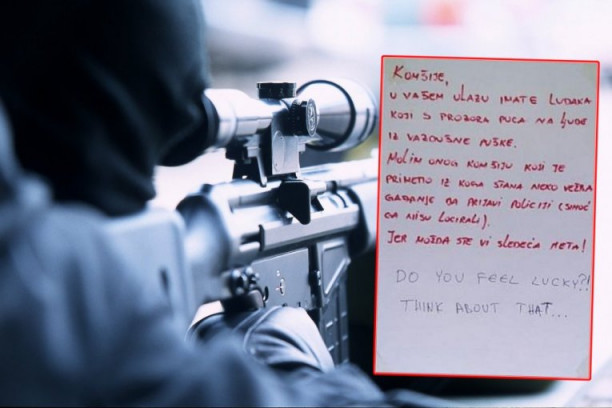 KOMŠIJE,
U VAŠEM ULAZU IMATE LUDAKA
KOJI S PROZORA PUCA NA LJUDE
IZ VAZDUŠNE PUŠKE.
MOLIM ONOG KOMŠIJU KOJI JE
PRIMETIO IZ KOGA STANA NEKO VEŽBA
GAĐANJE DA PRIJAVI POLICIJI (SINOĆ
GA NISU LOCIRALI).
JER MOŽDA STE VI SLEDEĆA META!
DO YOU FEEL LUCKY?!
THINK ABOUT THAT...